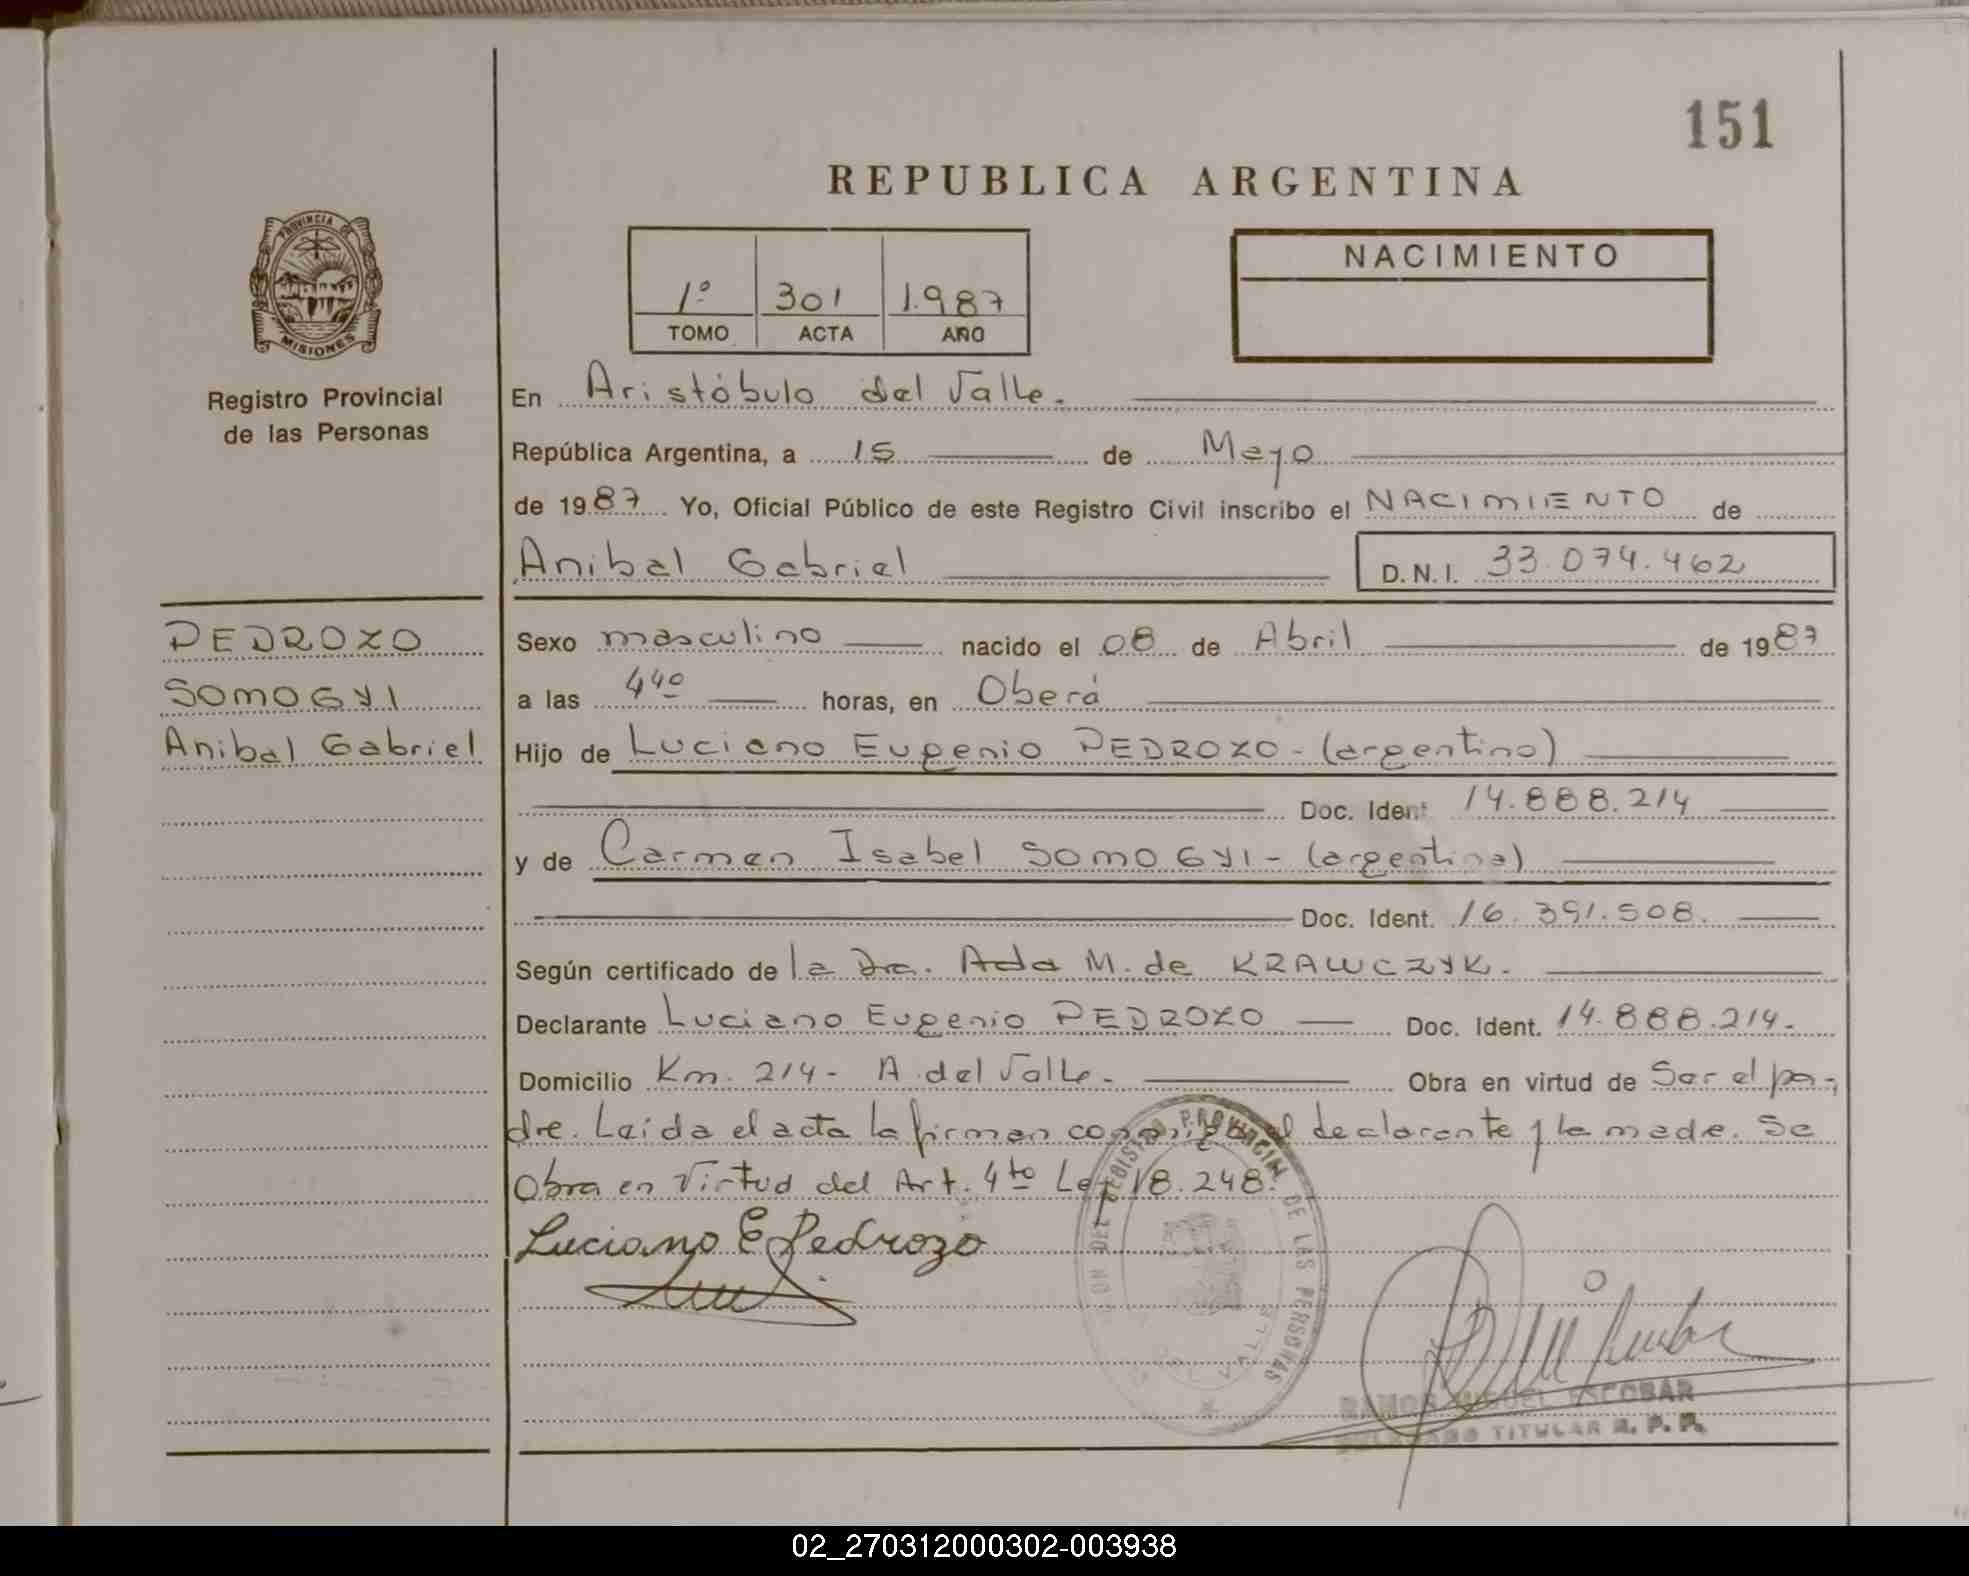 151
REPUBLICA ARGENTINA
PROVINCIA DE
MISIONES
Registro Provincial
de las Personas
1º 301 1.987
TOMO ACTA AÑO
NACIMIENTO
En Aristóbulo del Valle.
República Argentina, a 15 de Mayo
de 1987 Yo, Oficial Público de este Registro Civil inscribo el NACIMIENTO de
Anibal Gabriel D.N.I. 33.074.462
PEDROZO
SOMOGYI
Anibal Gabriel
Sexo masculino nacido el 08 de Abril de 1987
a las 440 horas, en Oberá
Hijo de Luciano Eugenio PEDROZO - (argentino)
Doc. Ident. 14.888.214
y de Carmen Isabel SOMOGYI - (argentina)
Doc. Ident. 16.391.508.
Según certificado de la Dra. Ada M. de KRAWCZYK.
Declarante Luciano Eugenio PEDROZO Doc. Ident. 14.888.214.
Domicilio Km. 214 - A. del Valle. Obra en virtud de Ser el pa-
dre. Leida el acta la firman conmigo el declarante y la madre. Se
Obra en Virtud del Art. 4to Ley 18.248.
Luciano E Pedrozo
DEL REGISTRO PROVINCIAL DE LAS PERSONAS
VALLE
RAMON MIGUEL ESCOBAR
DELEGADO TITULAR R. P. P.
02_270312000302-003938